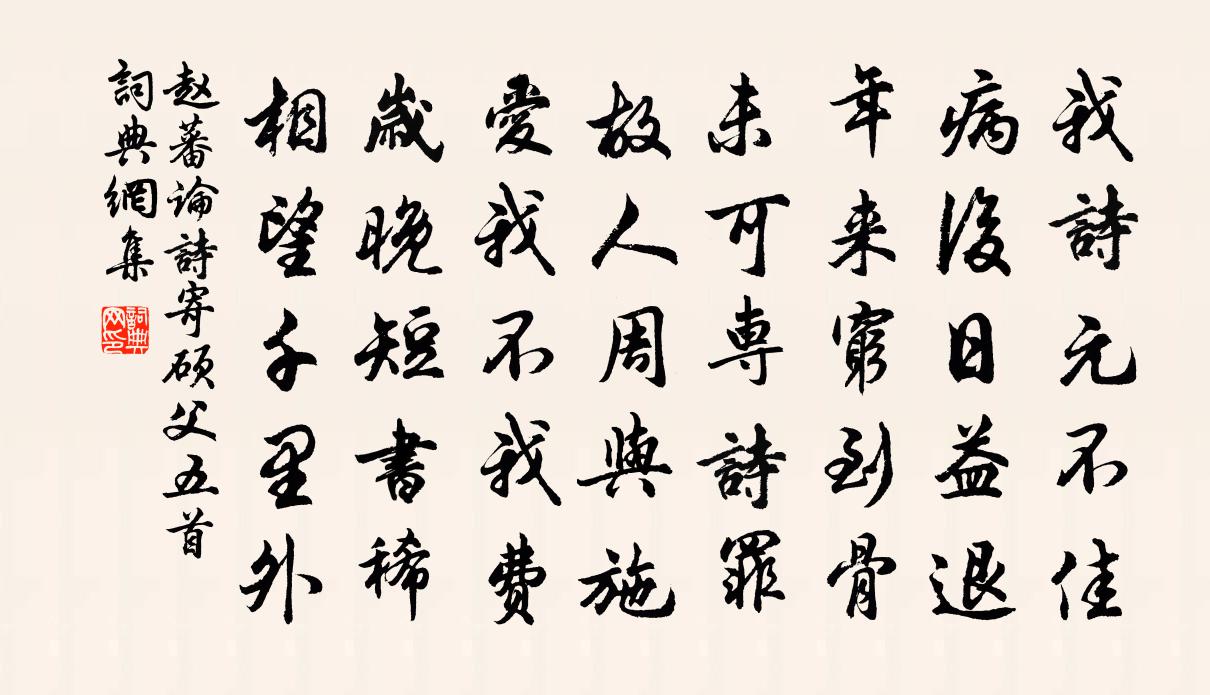 我詩元不佳
病後日益退
年来窮到骨
未可専詩罪
故人周與施
愛我不我費
歲晚短書稀
相望千里外
赵蕃論詩寄硕父五首
詞典網集
詞典網印